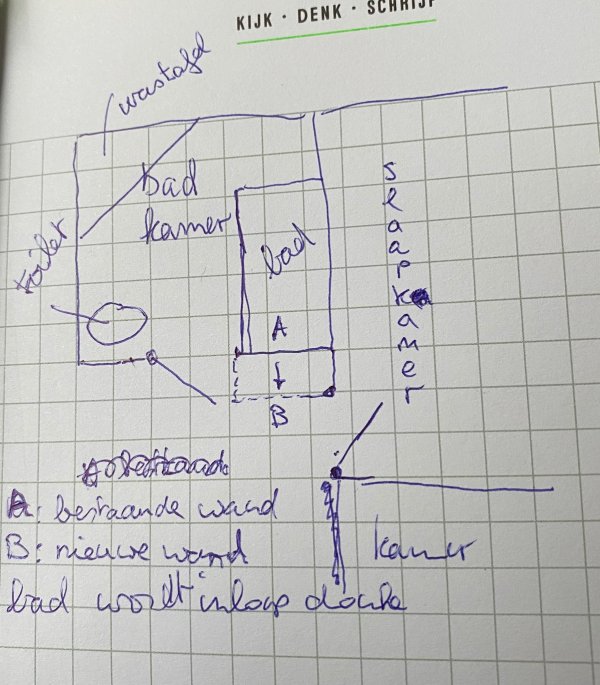 KIJK · DENK · SCHRIJF
wastafel
bad
kamer
toilet
bad
slaapkamer
A
B
A: bestaande wand
B: nieuwe wand
kamer
bad wordt inloop douche